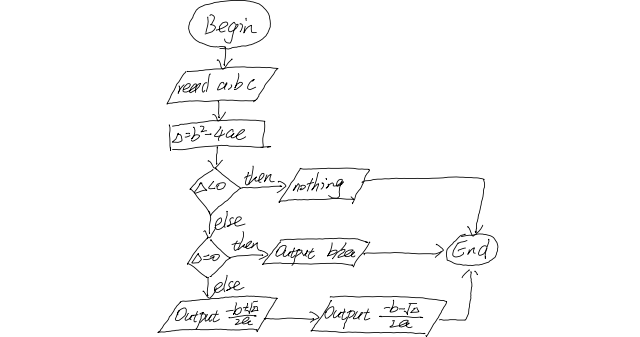 Begin
read a,b c
Δ=b²-4ac
Δ<0
then
nothing
else
Δ=0
then
Output b/2a
End
else
Output -b+√Δ/2a
Output -b-√Δ/2a